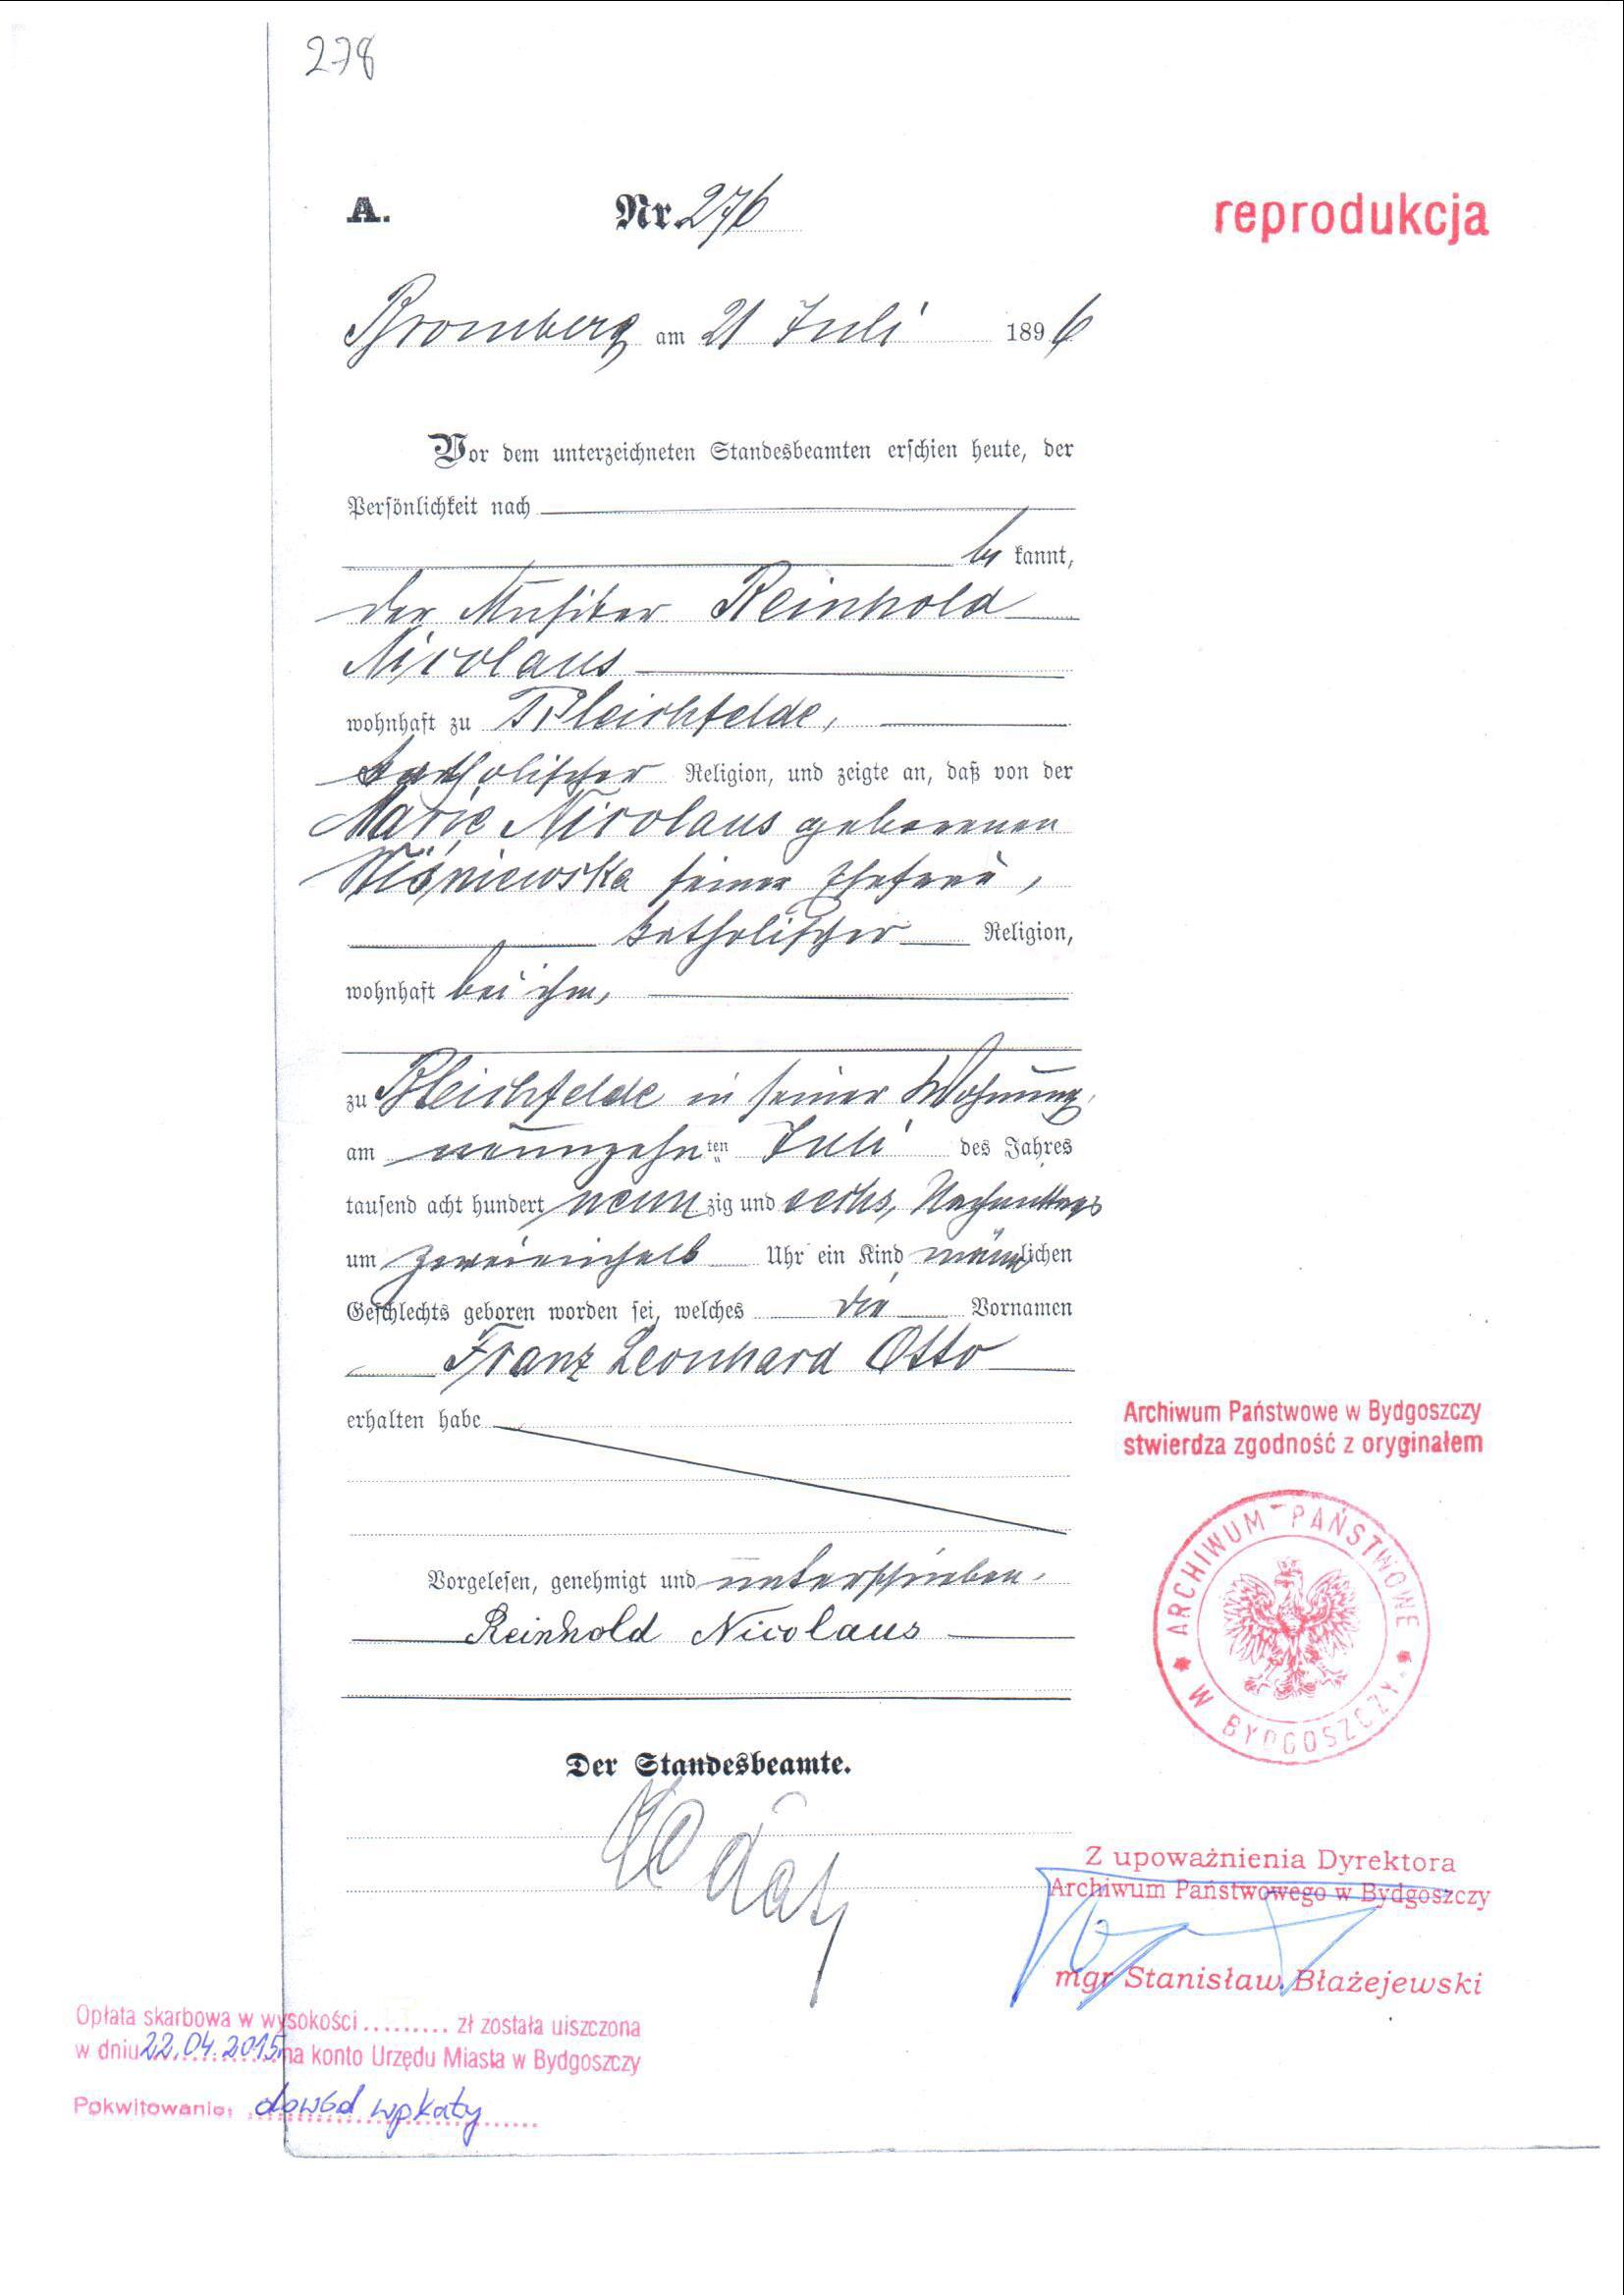 278
A. Nr. 276
reprodukcja
Bromberg am 21 Juli 1896
Vor dem unterzeichneten Standesbeamten erschien heute, der
Persönlichkeit nach
be kannt,
der Musiker Reinhold
Nicolaus
wohnhaft zu Bleichfelde,
katholischer Religion, und zeigte an, daß von der
Marie Nicolaus geborenen
Wiśniewska seiner Ehefrau,
katholischer Religion,
wohnhaft bei ihm,
zu Bleichfelde in seiner Wohnung,
am neunzehn ten Juli des Jahres
tausend acht hundert neun zig und sechs, Nachmittags
um zweieinhalb Uhr ein Kind männlichen
Geschlechts geboren worden sei, welches die Vornamen
Franz Leonhard Otto
erhalten habe
Vorgelesen, genehmigt und unterschrieben.
Reinhold Nicolaus
Der Standesbeamte.
Archiwum Państwowe w Bydgoszczy
stwierdza zgodność z oryginałem
ARCHIWUM PAŃSTWOWE
W BYDGOSZCZY
Z upoważnienia Dyrektora
Archiwum Państwowego w Bydgoszczy
mgr Stanisław Błażejewski
Opłata skarbowa w wysokości ......... zł została uiszczona
w dniu 22.04.2015 na konto Urzędu Miasta w Bydgoszczy
Pokwitowanie: dowód wpłaty